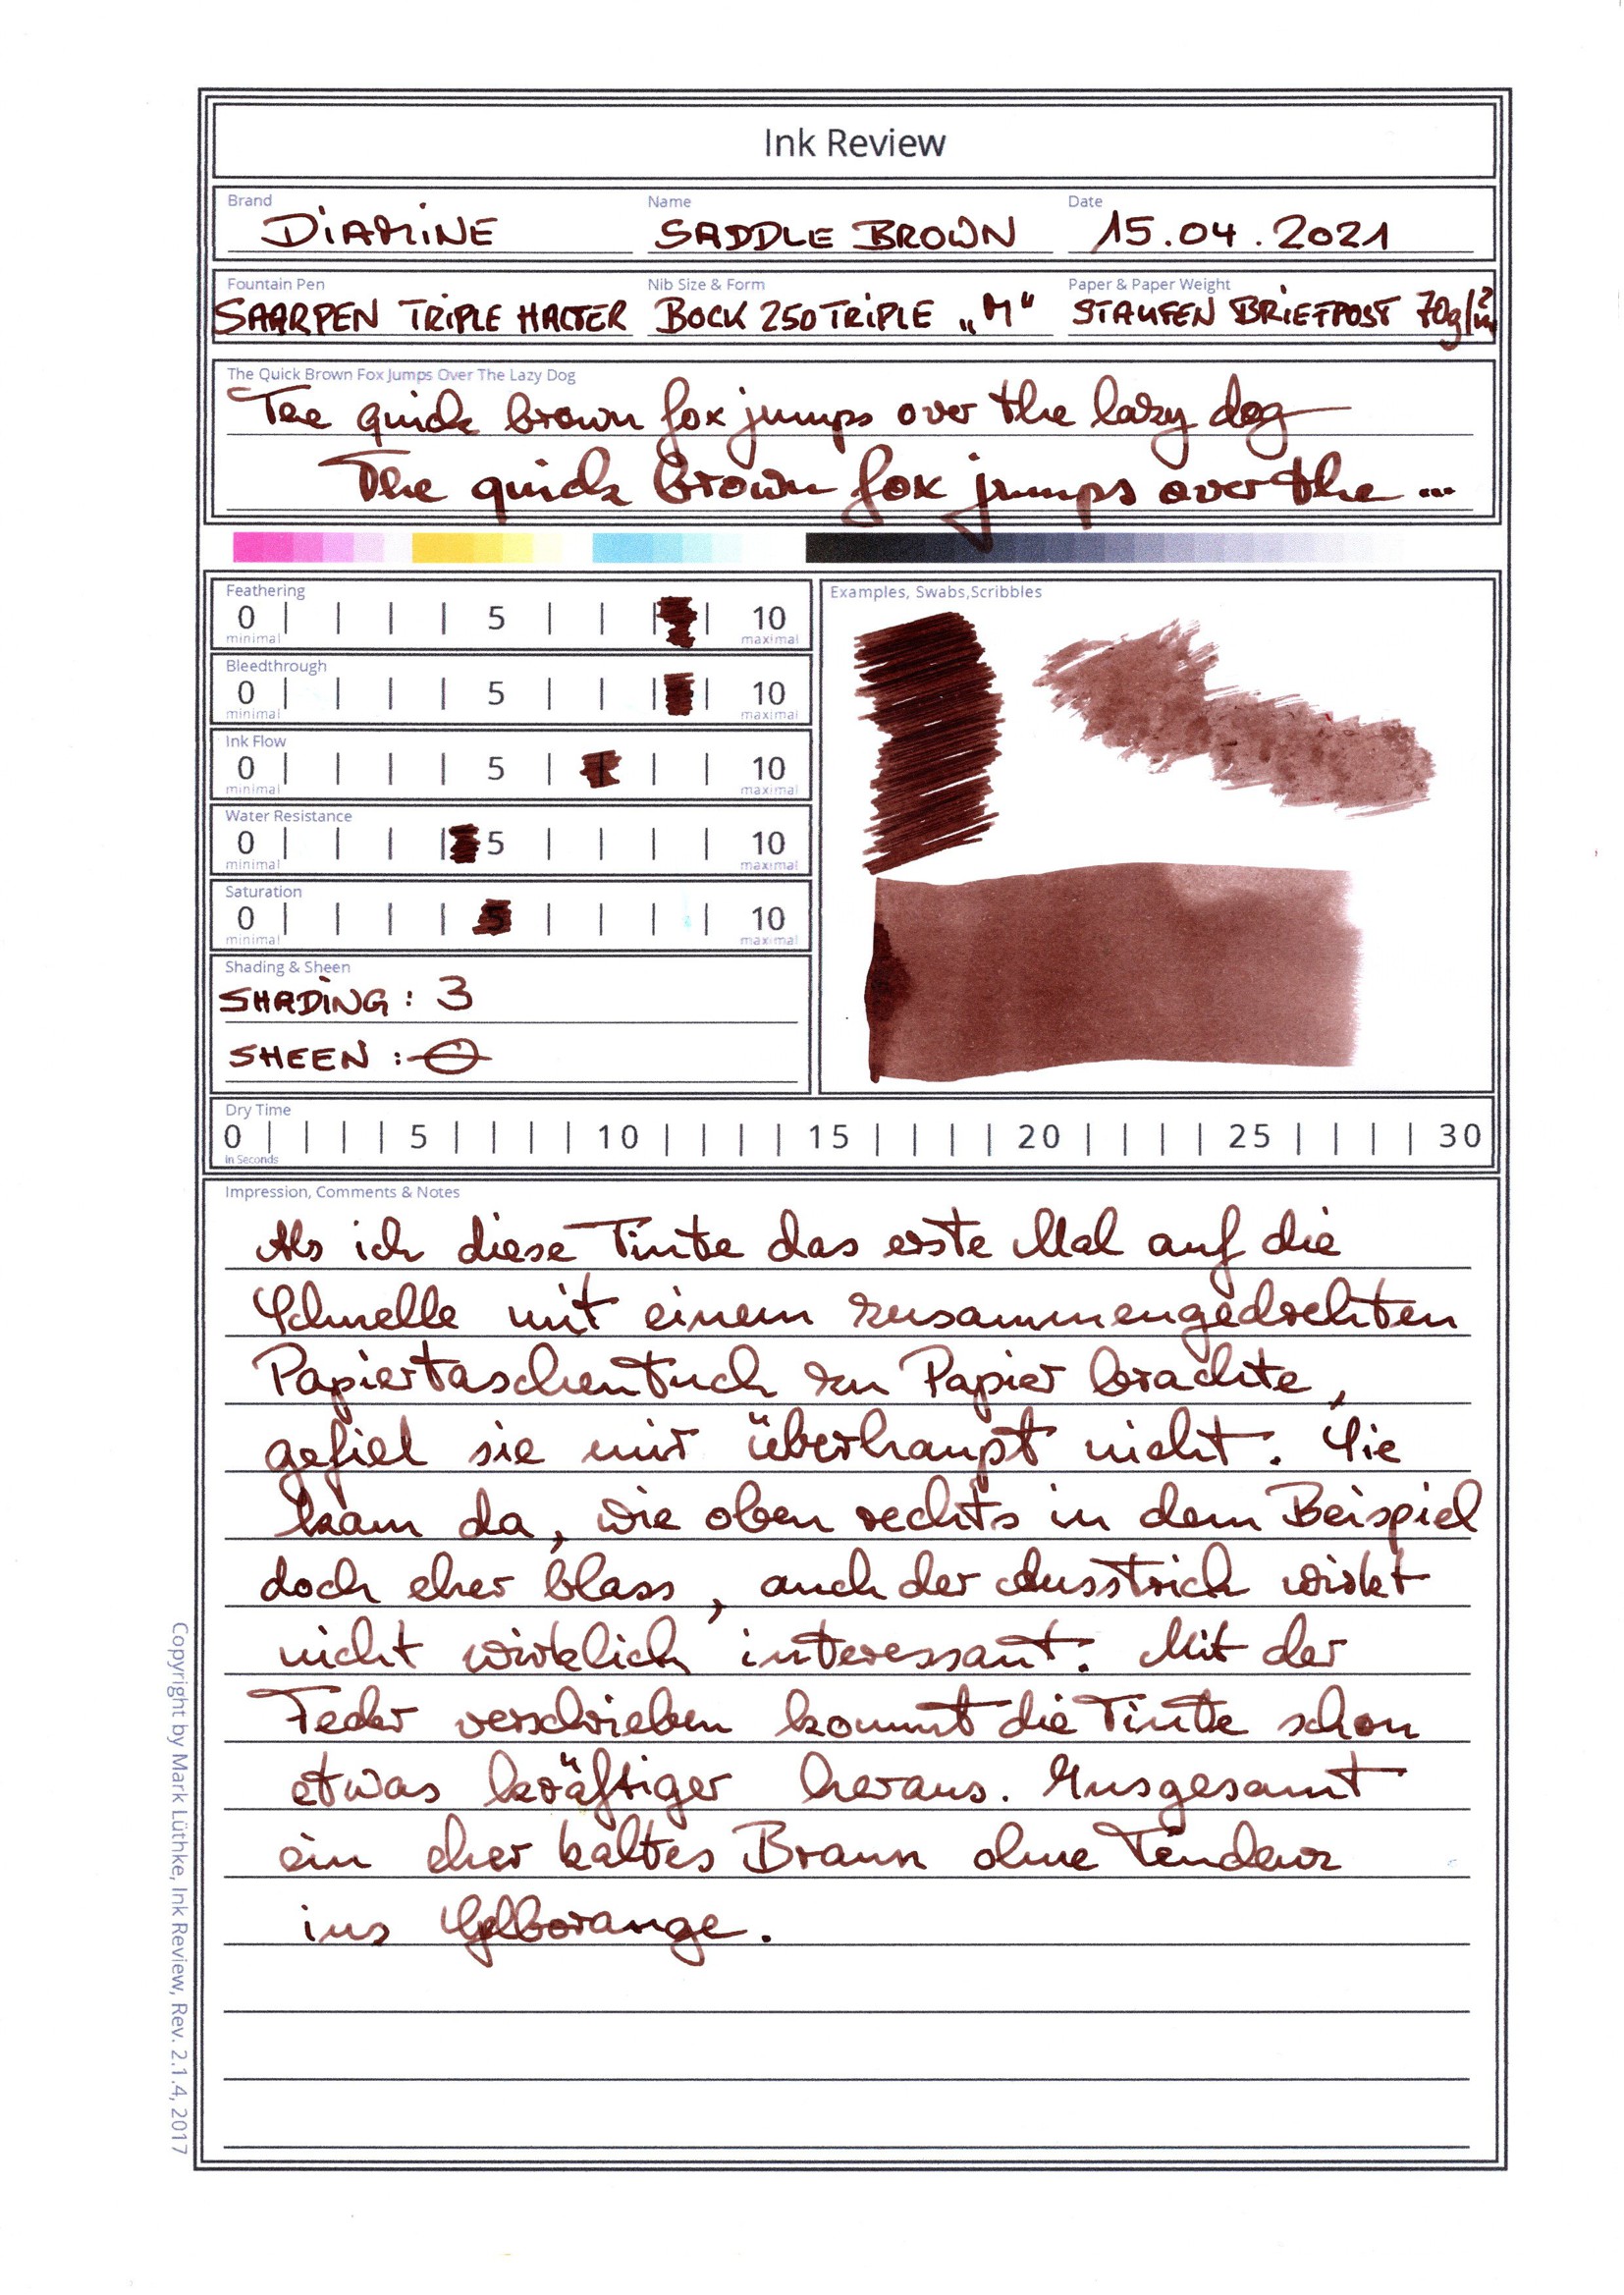 Ink Review
Brand Name Date
DIAMINE SADDLE BROWN 15.04.2021
Fountain Pen Nib Size & Form Paper & Paper Weight
SAARPEN TRIPLE HALTER BOCK 250 TRIPLE „M“ STAUFEN BRIEFPOST 70g/m²
The Quick Brown Fox Jumps Over The Lazy Dog
The quick brown fox jumps over the lazy dog
The quick brown fox jumps over the ...
Feathering
0 5 10
minimal maximal
Bleedthrough
0 5 10
minimal maximal
Ink Flow
0 5 10
minimal maximal
Water Resistance
0 5 10
minimal maximal
Saturation
0 5 10
minimal maximal
Shading & Sheen
SHADING : 3
SHEEN :
Examples, Swabs,Scribbles
Dry Time
0 5 10 15 20 25 30
In Seconds
Impression, Comments & Notes
Als ich diese Tinte das erste Mal auf die
Schnelle mit einem zusammengedrehten
Papiertaschentuch zu Papier brachte,
gefiel sie mir überhaupt nicht. Sie
kam da, wie oben rechts in dem Beispiel
doch eher blass, auch der Ausstrich wirkt
nicht wirklich interessant. Mit der
Feder verschrieben kommt die Tinte schon
etwas kräftiger heraus. Insgesamt
ein eher kaltes Braun ohne Tendenz
ins Gelborange.
Copyright by Mark Lüthke, Ink Review, Rev. 2.1.4, 2017